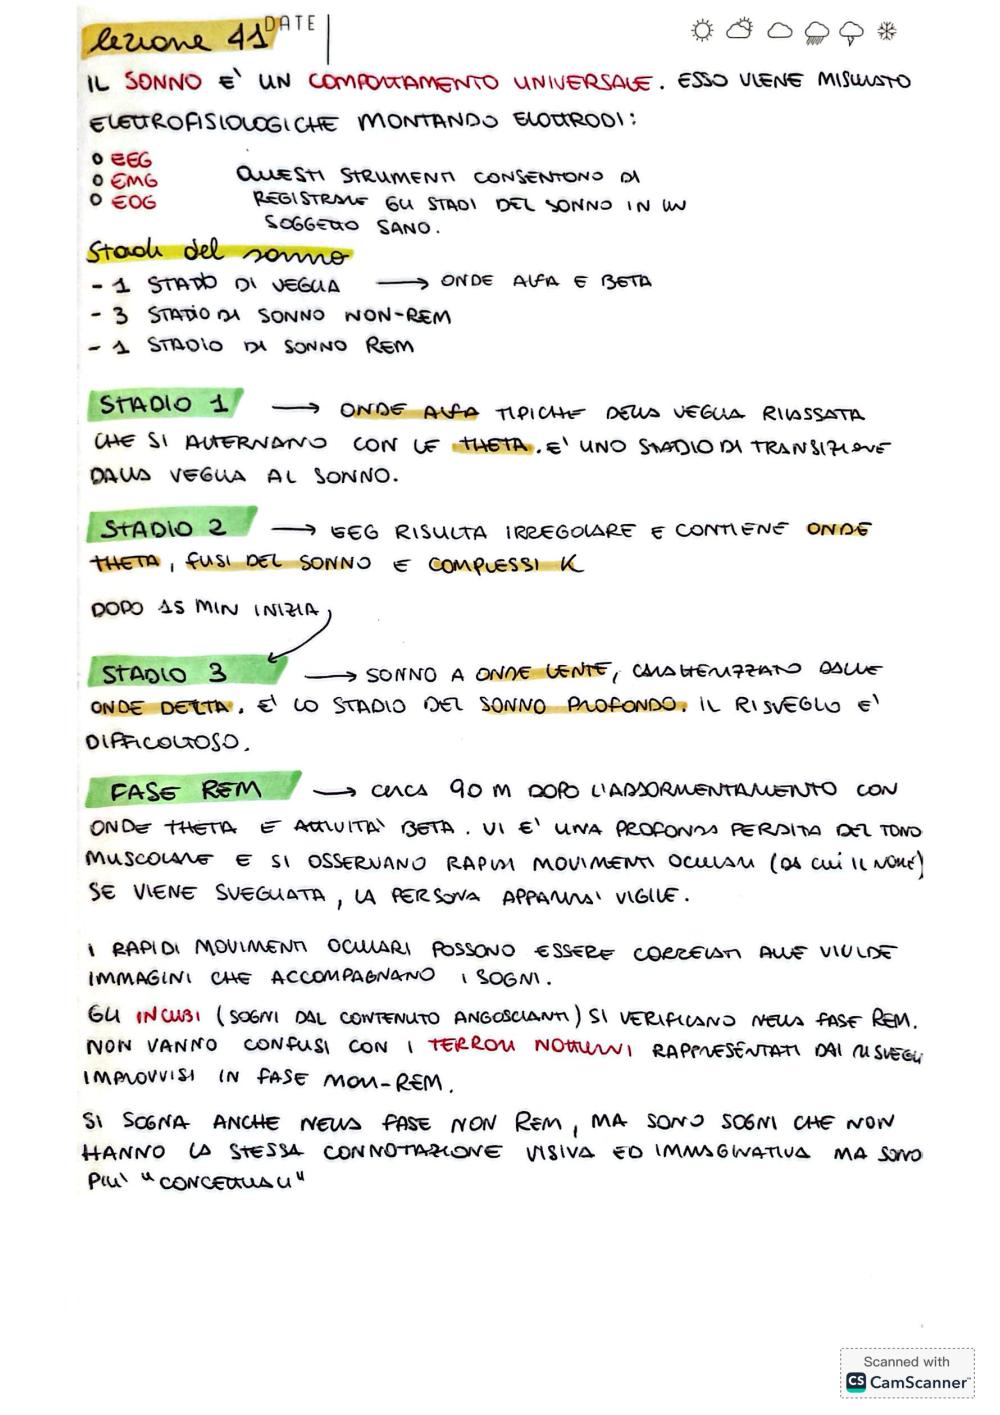 lezione 41 DATE
IL SONNO E' UN COMPORTAMENTO UNIVERSALE. ESSO VIENE MISURATO
ELETTROFISIOLOGICHE MONTANDO ELOTTRODI:
o EEG
o EMG
o EOG
QUESTI STRUMENTI CONSENTONO DI
REGISTRARE GLI STADI DEL SONNO IN UN
SOGGETTO SANO.
Stadi del sonno
- 1 STATO DI VEGLIA → ONDE ALFA E BETA
- 3 STADIO DI SONNO NON-REM
- 1 STADIO DI SONNO REM
STADIO 1 → ONDE ALFA TIPICHE DELLA VEGLIA RILASSATA
CHE SI ALTERNANO CON LE THETA. E' UNO STADIO DI TRANSIZIONE
DALLA VEGLIA AL SONNO.
STADIO 2 → EEG RISULTA IRREGOLARE E CONTIENE ONDE
THETA, FUSI DEL SONNO E COMPLESSI K
DOPO 15 MIN INIZIA,
STADIO 3 → SONNO A ONDE LENTE, CARATTERIZZATO DALLE
ONDE DELTA. E' LO STADIO DEL SONNO PROFONDO. IL RISVEGLIO E'
DIFFICOLTOSO.
FASE REM → CIRCA 90 M DOPO L'ADDORMENTAMENTO CON
ONDE THETA E ATTIVITA' BETA. VI E' UNA PROFONDA PERDITA DEL TONO
MUSCOLARE E SI OSSERVANO RAPIDI MOVIMENTI OCULARI (DA CUI IL NOME)
SE VIENE SVEGLIATA, LA PERSONA APPARIRA' VIGILE.
I RAPIDI MOVIMENTI OCULARI POSSONO ESSERE CORRELATI ALLE VIVIDE
IMMAGINI CHE ACCOMPAGNANO I SOGNI.
GLI INCUBI (SOGNI DAL CONTENUTO ANGOSCIANTI) SI VERIFICANO NELLA FASE REM.
NON VANNO CONFUSI CON I TERRORI NOTTURNI RAPPRESENTATI DAI RISVEGLI
IMPROVVISI IN FASE NON-REM.
SI SOGNA ANCHE NELLA FASE NON REM, MA SONO SOGNI CHE NON
HANNO LA STESSA CONNOTAZIONE VISIVA ED IMMAGINATIVA MA SONO
PIU' "CONCETTUALI"
Scanned with
CS CamScanner